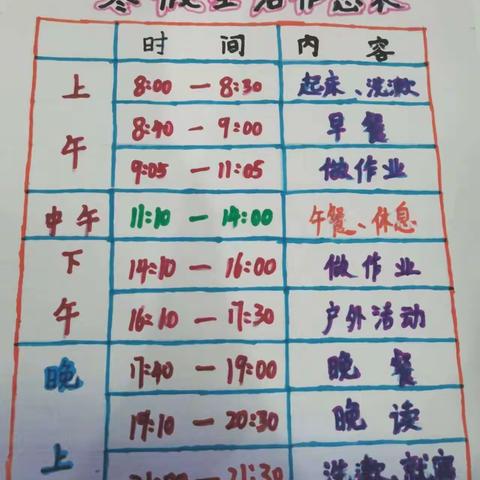 寒假生活作息表
时间 内容
上午
8:00 — 8:30 起床、洗漱
8:40 — 9:00 早餐
9:05 — 11:05 做作业
中午 11:10 — 14:00 午餐、休息
下午
14:10 — 16:00 做作业
16:10 — 17:30 户外活动
晚上
17:40 — 19:00 晚餐
19:10 — 20:30 晚读
21:30 洗漱、就寝